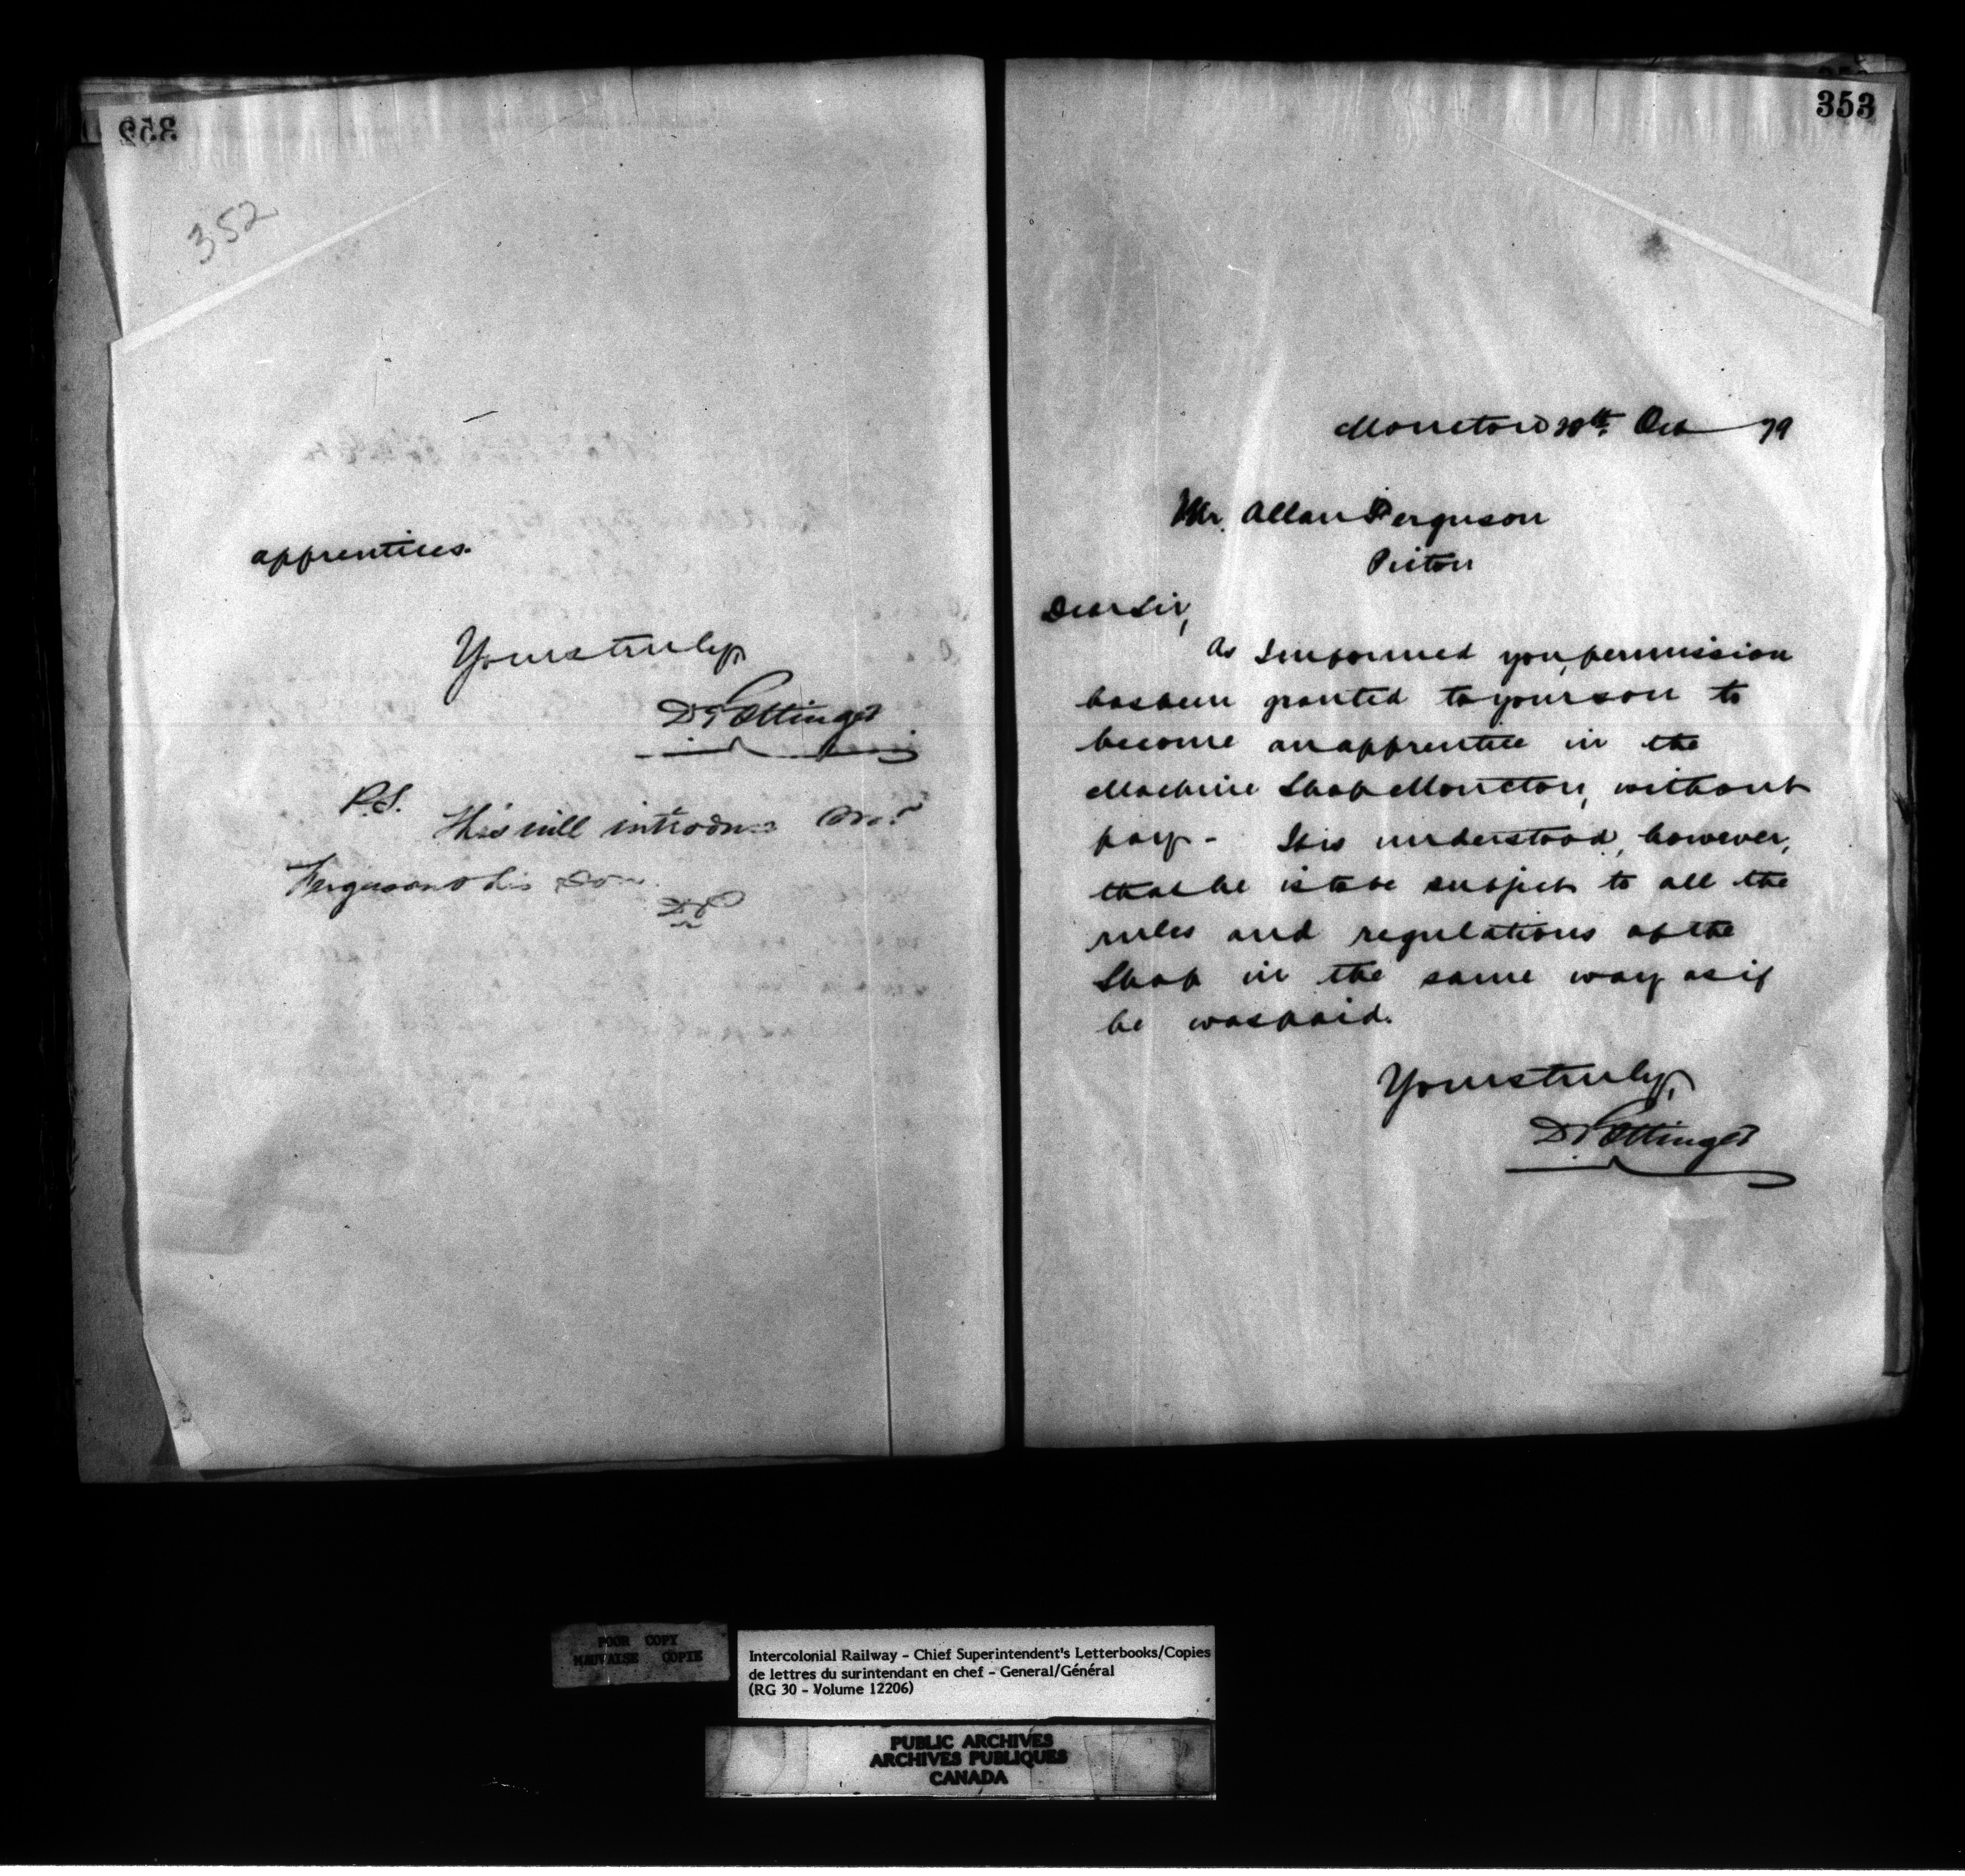 352
352
apprentices.
Yours truly,
D. Pottinger
P.S.
This will introduce Mr.
Ferguson & his son.
DP
353
Moncton 28th Oct 79
Mr. Allan Ferguson
Pictou
Dear Sir,
As I informed you, permission
has been granted to your son to
become an apprentice in the
Machine Shop Moncton, without
pay - It is understood, however,
that he is to be subject to all the
rules and regulations of the
Shop in the same way as if
he was paid.
Yours truly,
D. Pottinger
POOR COPY
MAUVAISE COPIE
Intercolonial Railway - Chief Superintendent's Letterbooks/Copies
de lettres du surintendant en chef - General/Général
(RG 30 - Volume 12206)
PUBLIC ARCHIVES
ARCHIVES PUBLIQUES
CANADA